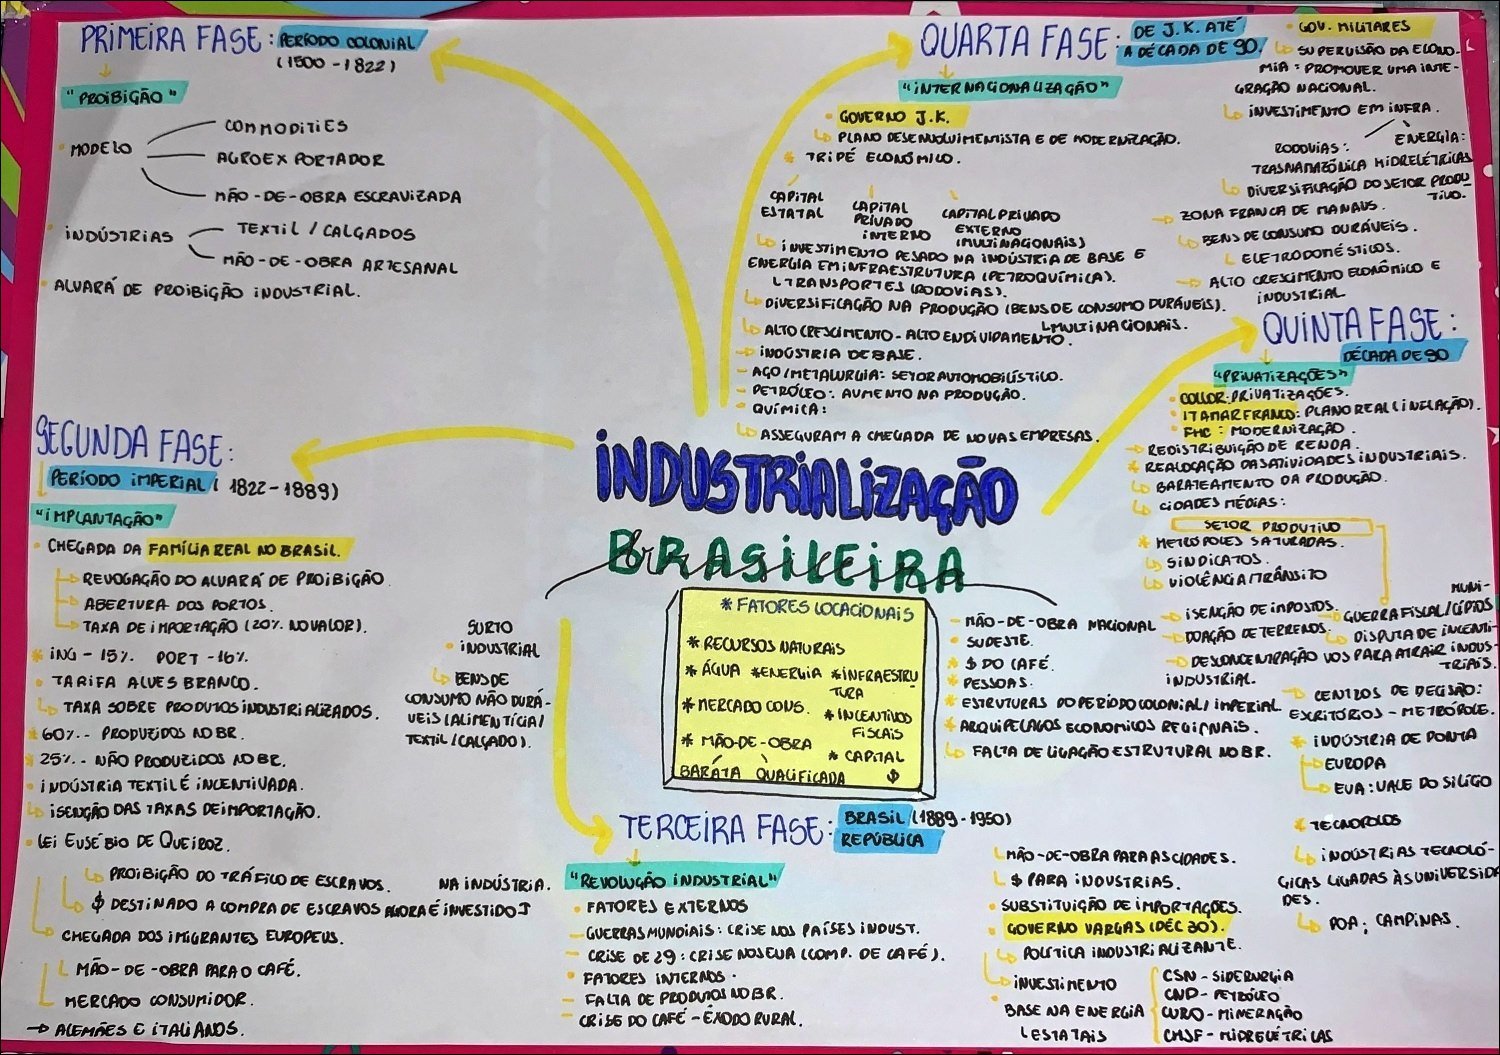 INDUSTRIALIZAÇÃO
BRASILEIRA
* FATORES LOCACIONAIS
* RECURSOS NATURAIS
* ÁGUA * ENERGIA * INFRAESTRU
TURA
* MERCADO CONS. * INCENTIVOS
FISCAIS
* MÃO-DE-OBRA * CAPITAL
BARÁTA QUALIFICADA $
PRIMEIRA FASE: PERÍODO COLONIAL
(1500-1822)
"PROIBIÇÃO"
MODELO
COMMODITIES
AGROEXPORTADOR
MÃO-DE-OBRA ESCRAVIZADA
INDÚSTRIAS
TEXTIL / CALGADOS
MÃO-DE-OBRA ARTESANAL
ALVARÁ DE PROIBIÇÃO INDUSTRIAL.
SEGUNDA FASE:
PERÍODO IMPERIAL ( 1822-1889)
"IMPLANTAÇÃO"
CHEGADA DA FAMÍLIA REAL NO BRASIL.
REVOGAÇÃO DO ALVARÁ DE PROIBIÇÃO
ABERTURA DOS PORTOS.
TAXA DE IMPORTAÇÃO (20% NO VALOR).
* ING - 15% PORT - 16%
TARIFA ALVES BRANCO.
TAXA SOBRE PRODUTOS INDUSTRIALIZADOS.
* 60% - PRODUZIDOS NO BR.
* 25% - NÃO PRODUZIDOS NO BR.
INDÚSTRIA TEXTIL É INCENTIVADA.
ISENÇÃO DAS TAXAS DE IMPORTAÇÃO.
LEI EUSÉBIO DE QUEIROZ.
PROIBIÇÃO DO TRÁFICO DE ESCRAVOS.
$ DESTINADO A COMPRA DE ESCRAVOS AGORA É INVESTIDO
NA INDÚSTRIA.
CHEGADA DOS IMIGRANTES EUROPEUS.
MÃO-DE-OBRA PARA O CAFÉ.
MERCADO CONSUMIDOR.
→ ALEMÃES E ITALIANOS.
SURTO
INDUSTRIAL
BENS DE
CONSUMO NÃO DURÁ-
VEIS (ALIMENTÍCIA /
TEXTIL / CALÇADO).
TERCEIRA FASE: BRASIL (1889-1950)
REPÚBLICA
"REVOLUÇÃO INDUSTRIAL"
FATORES EXTERNOS
GUERRAS MUNDIAIS: CRISE NOS PAÍSES INDUST.
CRISE DE 29: CRISE NOS EUA (COMP. DE CAFÉ).
FATORES INTERNOS
- FALTA DE PRODUTOS NO BR.
- CRISE DO CAFÉ - ÊXODO RURAL.
MÃO-DE-OBRA PARA AS CIDADES.
$ PARA INDUSTRIAS.
SUBSTITUIÇÃO DE IMPORTAÇÕES.
GOVERNO VARGAS (DÉC 30).
POLÍTICA INDUSTRIALIZANTE.
INVESTIMENTO
BASE NA ENERGIA
ESTATAIS
CSN - SIDERURGIA
CNP - PETRÓLEO
CVRD - MINERAÇÃO
CHSF - HIDRELÉTRICAS
- MÃO-DE-OBRA NACIONAL
SUDESTE.
* $ DO CAFÉ.
* PESSOAS.
* ESTRUTURAS DO PERÍODO COLONIAL / IMPERIAL
* ARQUIPELAGOS ECONOMICOS REGIONAIS.
FALTA DE LIGAÇÃO ESTRUTURAL NO BR.
QUARTA FASE: DE J.K. ATÉ
A DÉCADA DE 90.
"INTERNACIONALIZAÇÃO"
GOVERNO J.K.
PLANO DESENVOLVIMENTISTA E DE MODERNIZAÇÃO.
* TRIPÉ ECONÔMICO.
CAPITAL
ESTATAL
CAPITAL
PRIVADO
INTERNO
CAPITAL PRIVADO
EXTERNO
(MULTINACIONAIS)
INVESTIMENTO PESADO NA INDÚSTRIA DE BASE E
ENERGIA EM INFRAESTRUTURA (PETROQUÍMICA).
TRANSPORTES (RODOVIAS).
DIVERSIFICAÇÃO NA PRODUÇÃO (BENS DE CONSUMO DURÁVEIS).
MULTINACIONAIS.
ALTO CRESCIMENTO - ALTO ENDIVIDAMENTO.
→ INDÚSTRIA DE BASE.
- AÇO / METALURGIA: SETOR AUTOMOBILÍSTICO.
- PETRÓLEO: AUMENTO NA PRODUÇÃO.
QUÍMICA:
ASSEGURAM A CHEGADA DE NOVAS EMPRESAS.
GOV. MILITARES
SUPERVISÃO DA ECONO-
MIA: PROMOVER UMA INTE-
GRAÇÃO NACIONAL.
INVESTIMENTO EM INFRA.
RODOVIAS:
TRASNAMAZÔNICA
ENERGIA:
HIDRELÉTRICAS
DIVERSIFICAÇÃO DO SETOR PRODU
TIVO.
→ ZONA FRANCA DE MANAUS.
BENS DE CONSUMO DURÁVEIS.
ELETRODOMÉSTICOS.
→ ALTO CRESCIMENTO ECONÔMICO E
INDUSTRIAL
QUINTA FASE:
DÉCADA DE 90
"PRIVATIZAÇÕES"
COLLOR: PRIVATIZAÇÕES.
ITAMAR FRANCO: PLANO REAL (INFLAÇÃO).
FHC: MODERNIZAÇÃO.
→ REDISTRIBUIÇÃO DE RENDA.
* REALOCAÇÃO DAS ATIVIDADES INDUSTRIAIS.
BARATEAMENTO DA PRODUÇÃO.
CIDADES MÉDIAS:
SETOR PRODUTIVO
* METRÓPOLES SATURADAS.
SINDICATOS.
VIOLÊNCIA / TRÂNSITO
→ ISENÇÃO DE IMPOSTOS.
→ DOAÇÃO DE TERRENOS.
→ DESCONCENTRAÇÃO
INDUSTRIAL.
MUNI-
GUERRA FISCAL / CÍPIOS
DISPUTA DE INCENTI-
VOS PARA ATRAIR INDUS-
TRIAIS.
→ CENTROS DE DECISÃO:
ESCRITÓRIOS - METRÓPOLE.
* INDÚSTRIA DE PONTA
EUROPA
EUA: VALE DO SILÍCIO
* TECNOPOLOS
INDÚSTRIAS TECNOLÓ-
GICAS LIGADAS ÀS UNIVERSIDA
DES.
POA; CAMPINAS.